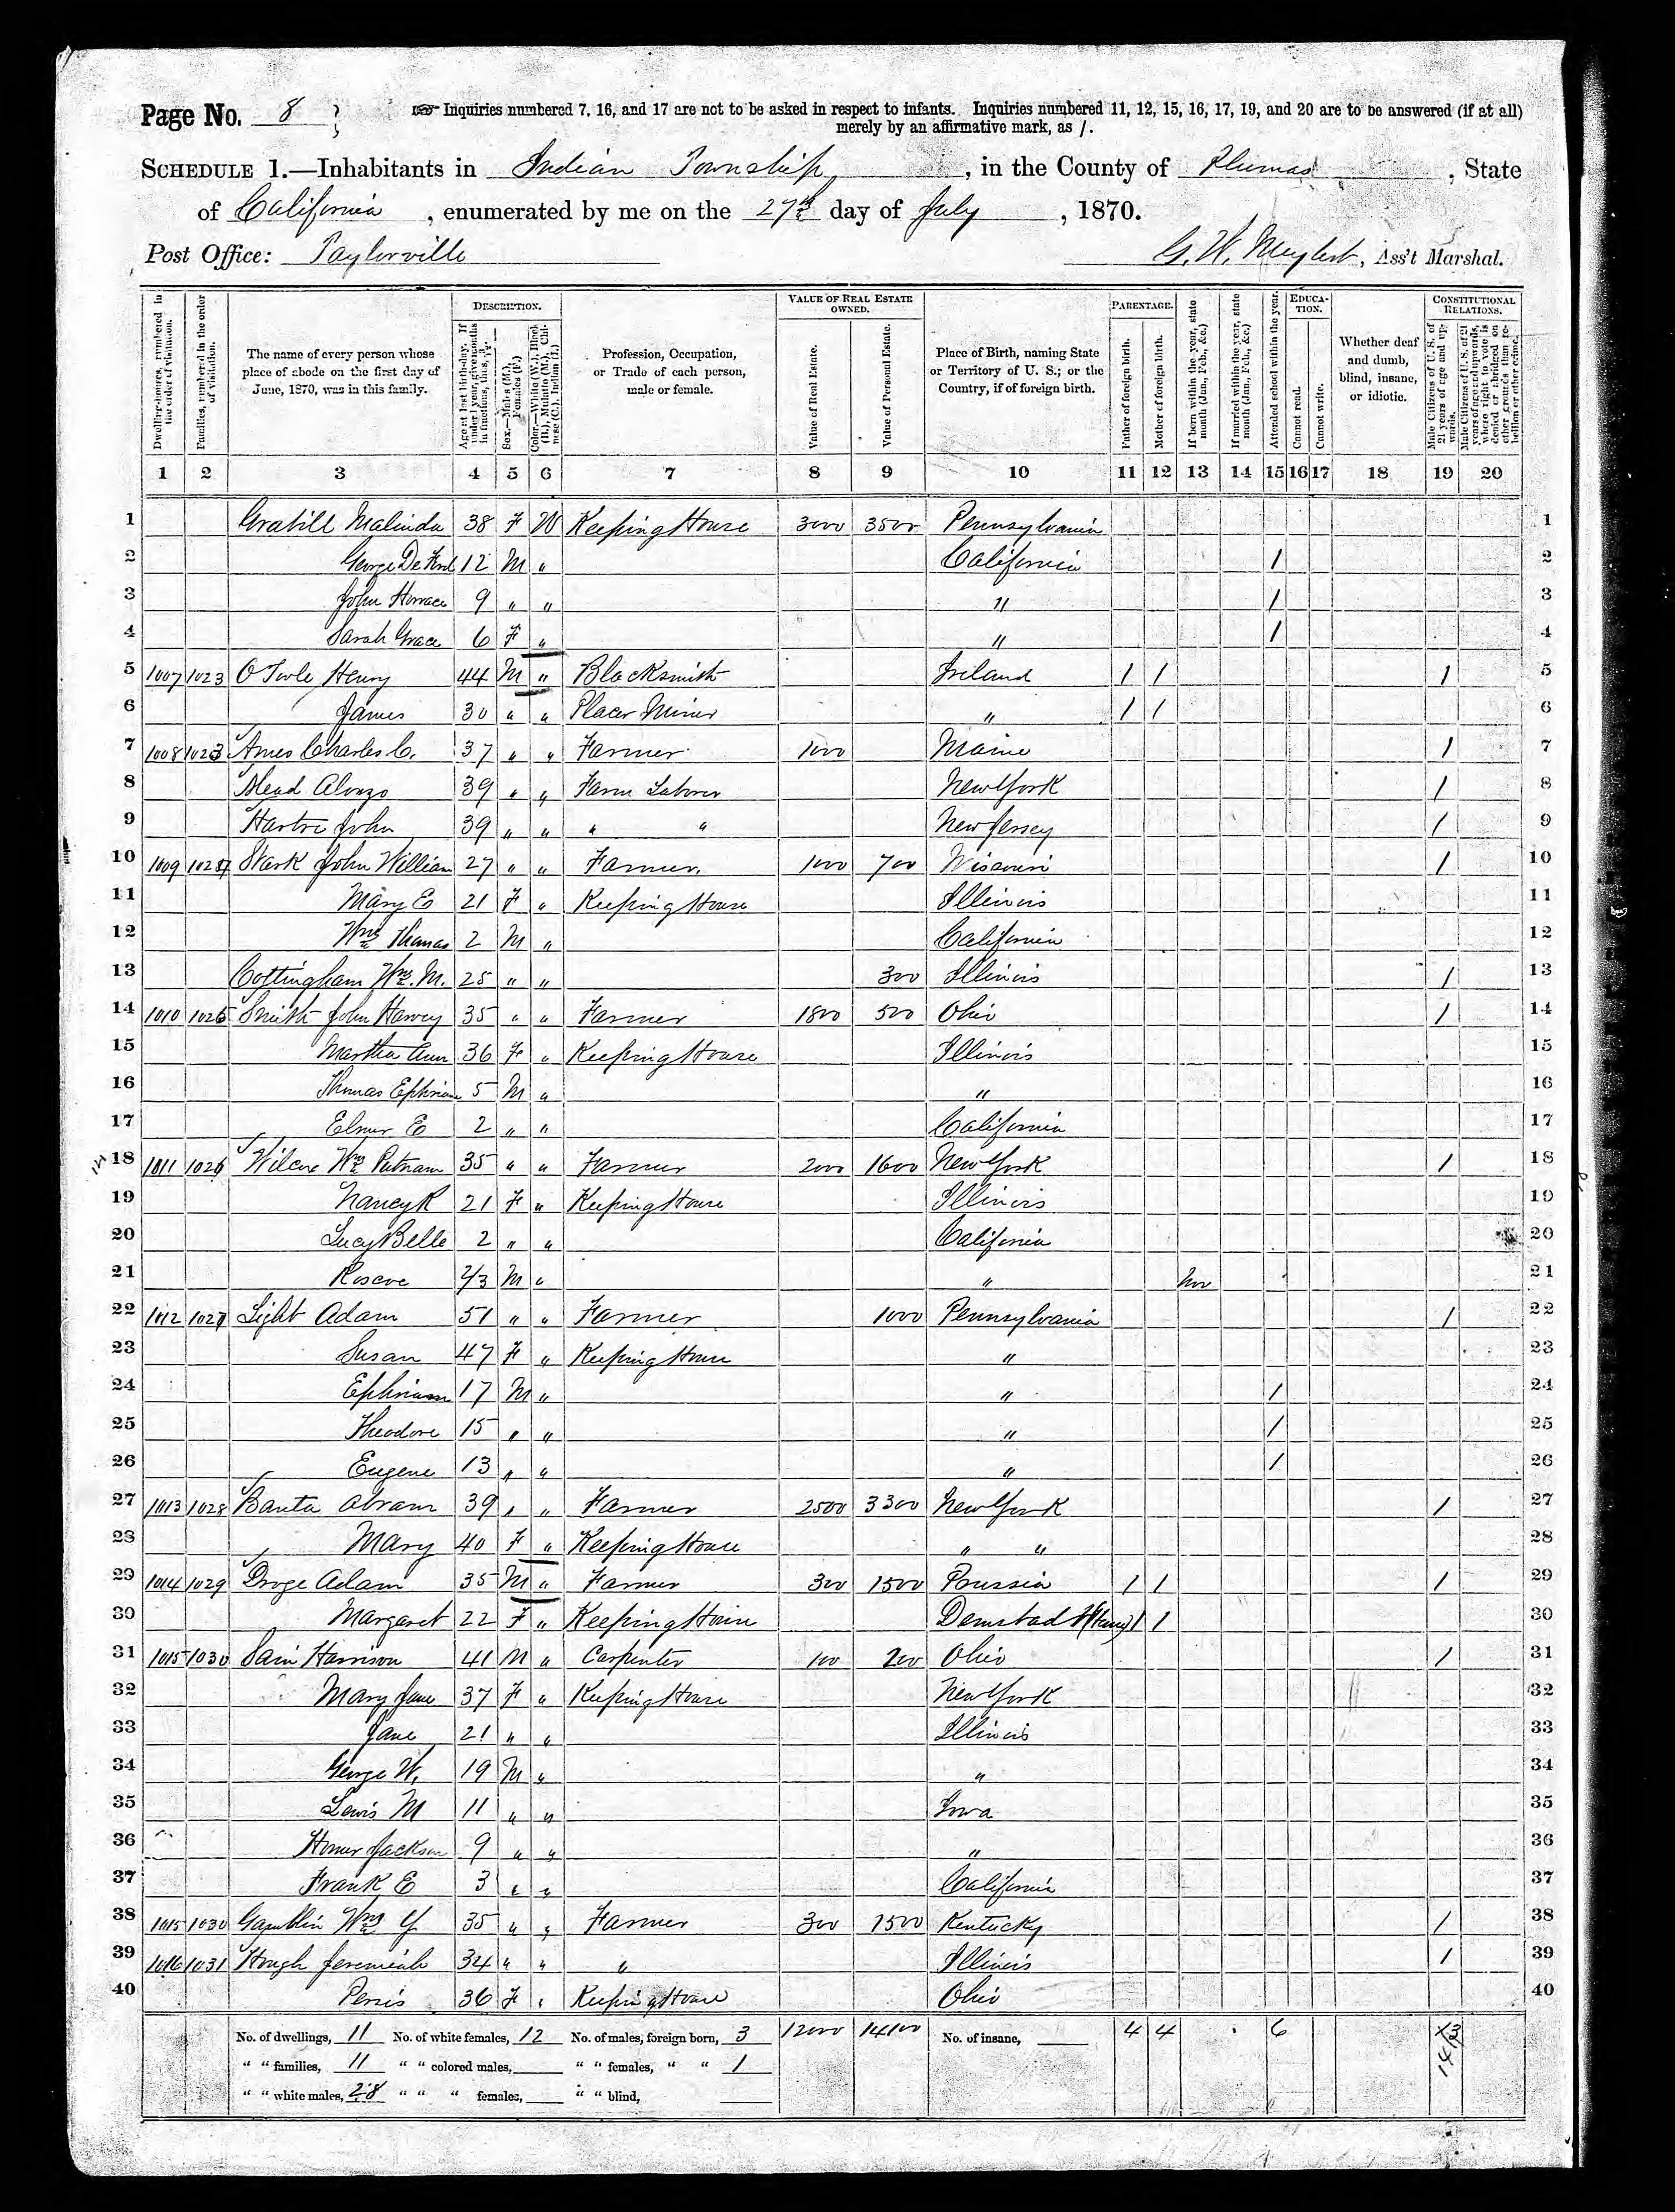 Page No. 8
Inquiries numbered 7, 16, and 17 are not to be asked in respect to infants. Inquiries numbered 11, 12, 15, 16, 17, 19, and 20 are to be answered (if at all)
merely by an affirmative mark, as /.
SCHEDULE 1.—Inhabitants in Indian Township, in the County of Plumas, State
of California, enumerated by me on the 27th day of July, 1870.
Post Office: Taylorville
G. W. Meylert, Ass't Marshal.
Dwelling-houses, numbered in the order of visitation.
Families, numbered in the order of visitation.
The name of every person whose place of abode on the first day of June, 1870, was in this family.
DESCRIPTION.
Age at last birth-day. If under 1 year, give months in fractions, thus, 3/12
Sex.—Males (M.), Females (F.)
Color.—White (W.), Black (B.), Mulatto (M.), Chinese (C.), Indian (I.)
Profession, Occupation, or Trade of each person, male or female.
VALUE OF REAL ESTATE OWNED.
Value of Real Estate.
Value of Personal Estate.
Place of Birth, naming State or Territory of U. S.; or the Country, if of foreign birth.
PARENTAGE.
Father of foreign birth.
Mother of foreign birth.
If born within the year, state month (Jan., Feb., &c.)
If married within the year, state month (Jan., Feb., &c.)
Attended school within the year.
EDUCATION.
Cannot read.
Cannot write.
Whether deaf and dumb, blind, insane, or idiotic.
CONSTITUTIONAL RELATIONS.
Male Citizens of U. S. of 21 years of age and upwards.
Male Citizens of U. S. of 21 years of age and upwards, where right to vote is denied or abridged on other grounds than rebellion or other crime.
1 2 3 4 5 6 7 8 9 10 11 12 13 14 15 16 17 18 19 20
1 Grabill Malinda 38 F W Keeping House 3000 3500 Pennsylvania 1
2 George De Ford 12 M " California / 2
3 John Horrace 9 " " " / 3
4 Sarah Grace 6 F " " / 4
5 1007 1023 O Toole Henry 44 M " Blacksmith Ireland / / / 5
6 James 30 " " Placer Miner " / / 6
7 1008 1023 Ames Charles C. 37 " " Farmer 1000 Maine / 7
8 Mead Alonzo 39 " " Farm Laborer New York / 8
9 John 39 " " " " New Jersey / 9
10 1009 1024 Stark John William 27 " " Farmer. 1000 700 / 10
11 Mary E 21 F " Keeping House Illinois 11
12 Wm Thomas 2 M " California 12
13 Cottingham Wm. M. 25 " " 300 Illinois / 13
14 1010 1025 Smith John Harvey 35 " " Farmer 1800 500 Ohio / 14
15 Martha Ann 36 F " Keeping House Illinois 15
16 Thomas Ephriam 5 M " " 16
17 Elmer E 2 " " California 17
18 1011 1026 Wilcox Wm Putnam 35 " " Farmer 2000 1600 New York / 18
19 Nancy R 21 F " Keeping House Illinois 19
20 Lucy Belle 2 " " California 20
21 Roscoe 2/3 M " " Nov 21
22 1012 1027 Light Adam 51 " " Farmer 1000 Pennsylvania / 22
23 Susan 47 F " Keeping House " 23
24 Ephriam 17 M " " / 24
25 Theodore 15 " " " / 25
26 Eugene 13 " " " / 26
27 1013 1028 Banta Abram 39 " " Farmer 2500 3300 New York / 27
28 Mary 40 F " Keeping House " " 28
29 1014 1029 Droge Adam 35 M " Farmer 300 1500 Prussia / / / 29
30 Margaret 22 F " Keeping House / / 30
31 1015 1030 Sain Harrison 41 M " Carpenter 100 200 Ohio / 31
32 Mary Jane 37 F " Keeping House New York 32
33 Jane 21 " " Illinois 33
34 George W. 19 M " " 34
35 Lewis M 11 " " Iowa 35
36 Homer Jackson 9 " " " 36
37 Frank E 3 " " California 37
38 1015 1030 Gamblin Wm Y 35 " " Farmer 300 1500 Kentucky / 38
39 1016 1031 Hough Jeremiah 34 " " " Illinois / 39
40 Persis 36 F " Keeping House Ohio 40
No. of dwellings, 11 No. of white females, 12 No. of males, foreign born, 3 12000 14100 No. of insane, 4 4 6
" " families, 11 " " colored males, " " females, " " 1
" " white males, 28 " " " females, " " blind,